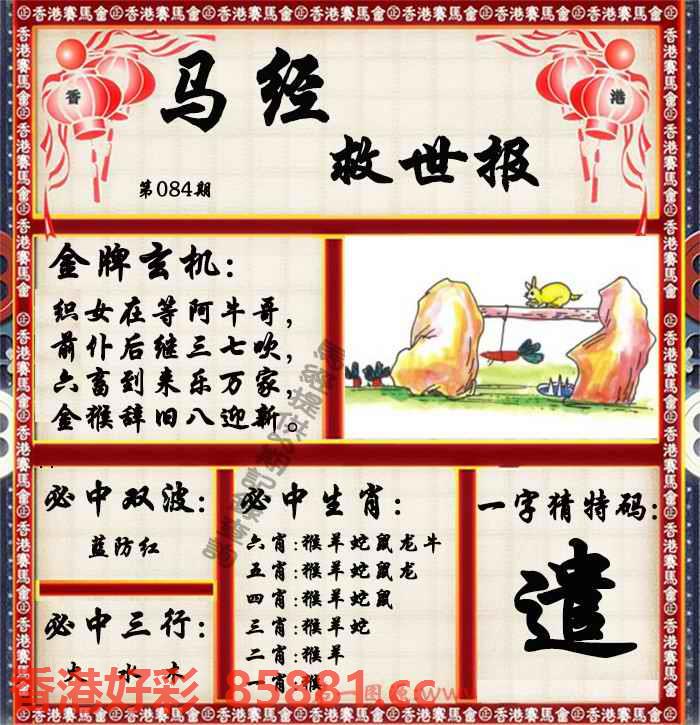 香港賽馬會
香
港
马经
救世报
第084期
金牌玄机：
织女在等阿牛哥，
前仆后继三七吹，
六畜到来乐万家，
金猴辞旧八迎新。
必中双波：
蓝防红
必中三行：
水木
必中生肖：
六肖：猴羊蛇鼠龙牛
五肖：猴羊蛇鼠龙
四肖：猴羊蛇鼠
三肖：猴羊蛇
二肖：猴羊
一肖：猴
一字猜特码：
遣
香港好彩 85881.cc